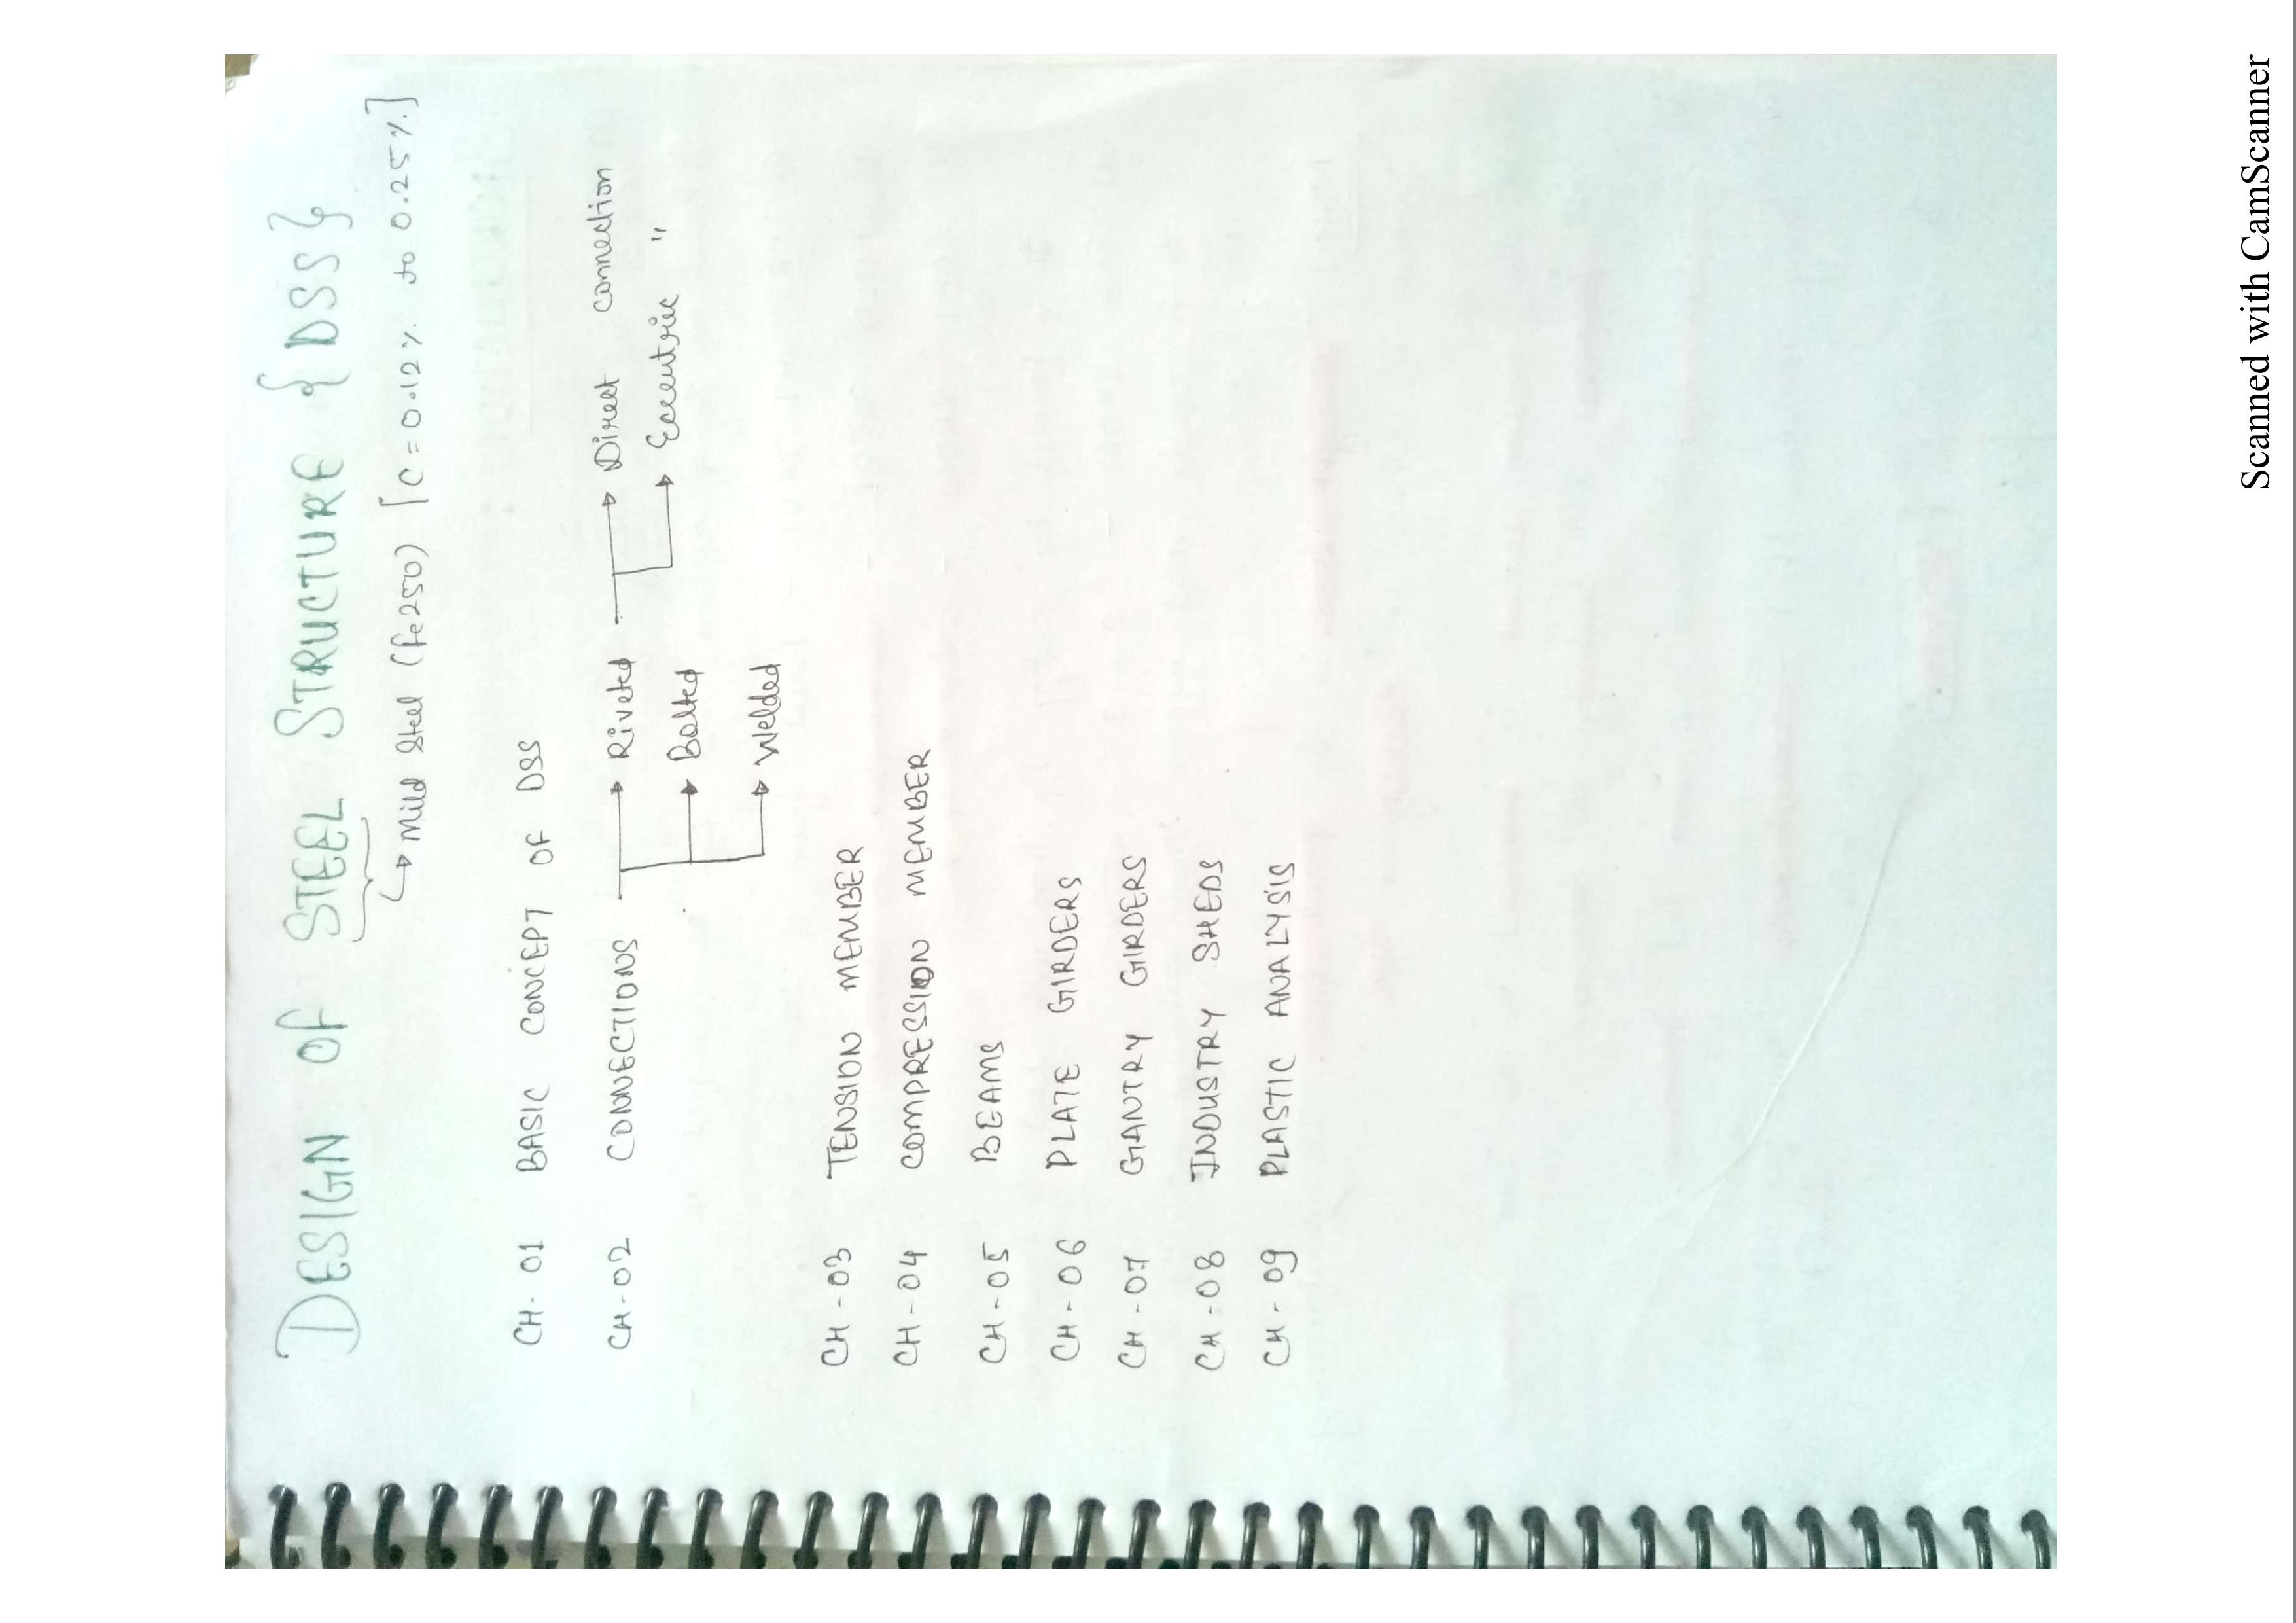 DESIGN OF STEEL STRUCTURE { DSS }
↳ Mild Steel (fe250) [C = 0.12 % to 0.25 %]
CH - 01 BASIC CONCEPT OF DSS
CH - 02 CONNECTIONS → Riveted → Direct connection
→ Eccentric "
→ Bolted
→ Welded
CH - 03 TENSION MEMBER
CH - 04 COMPRESSION MEMBER
CH - 05 BEAMS
CH - 06 PLATE GIRDERS
CH - 07 GANTRY GIRDERS
CH - 08 INDUSTRY SHEDS
CH - 09 PLASTIC ANALYSIS
Scanned with CamScanner